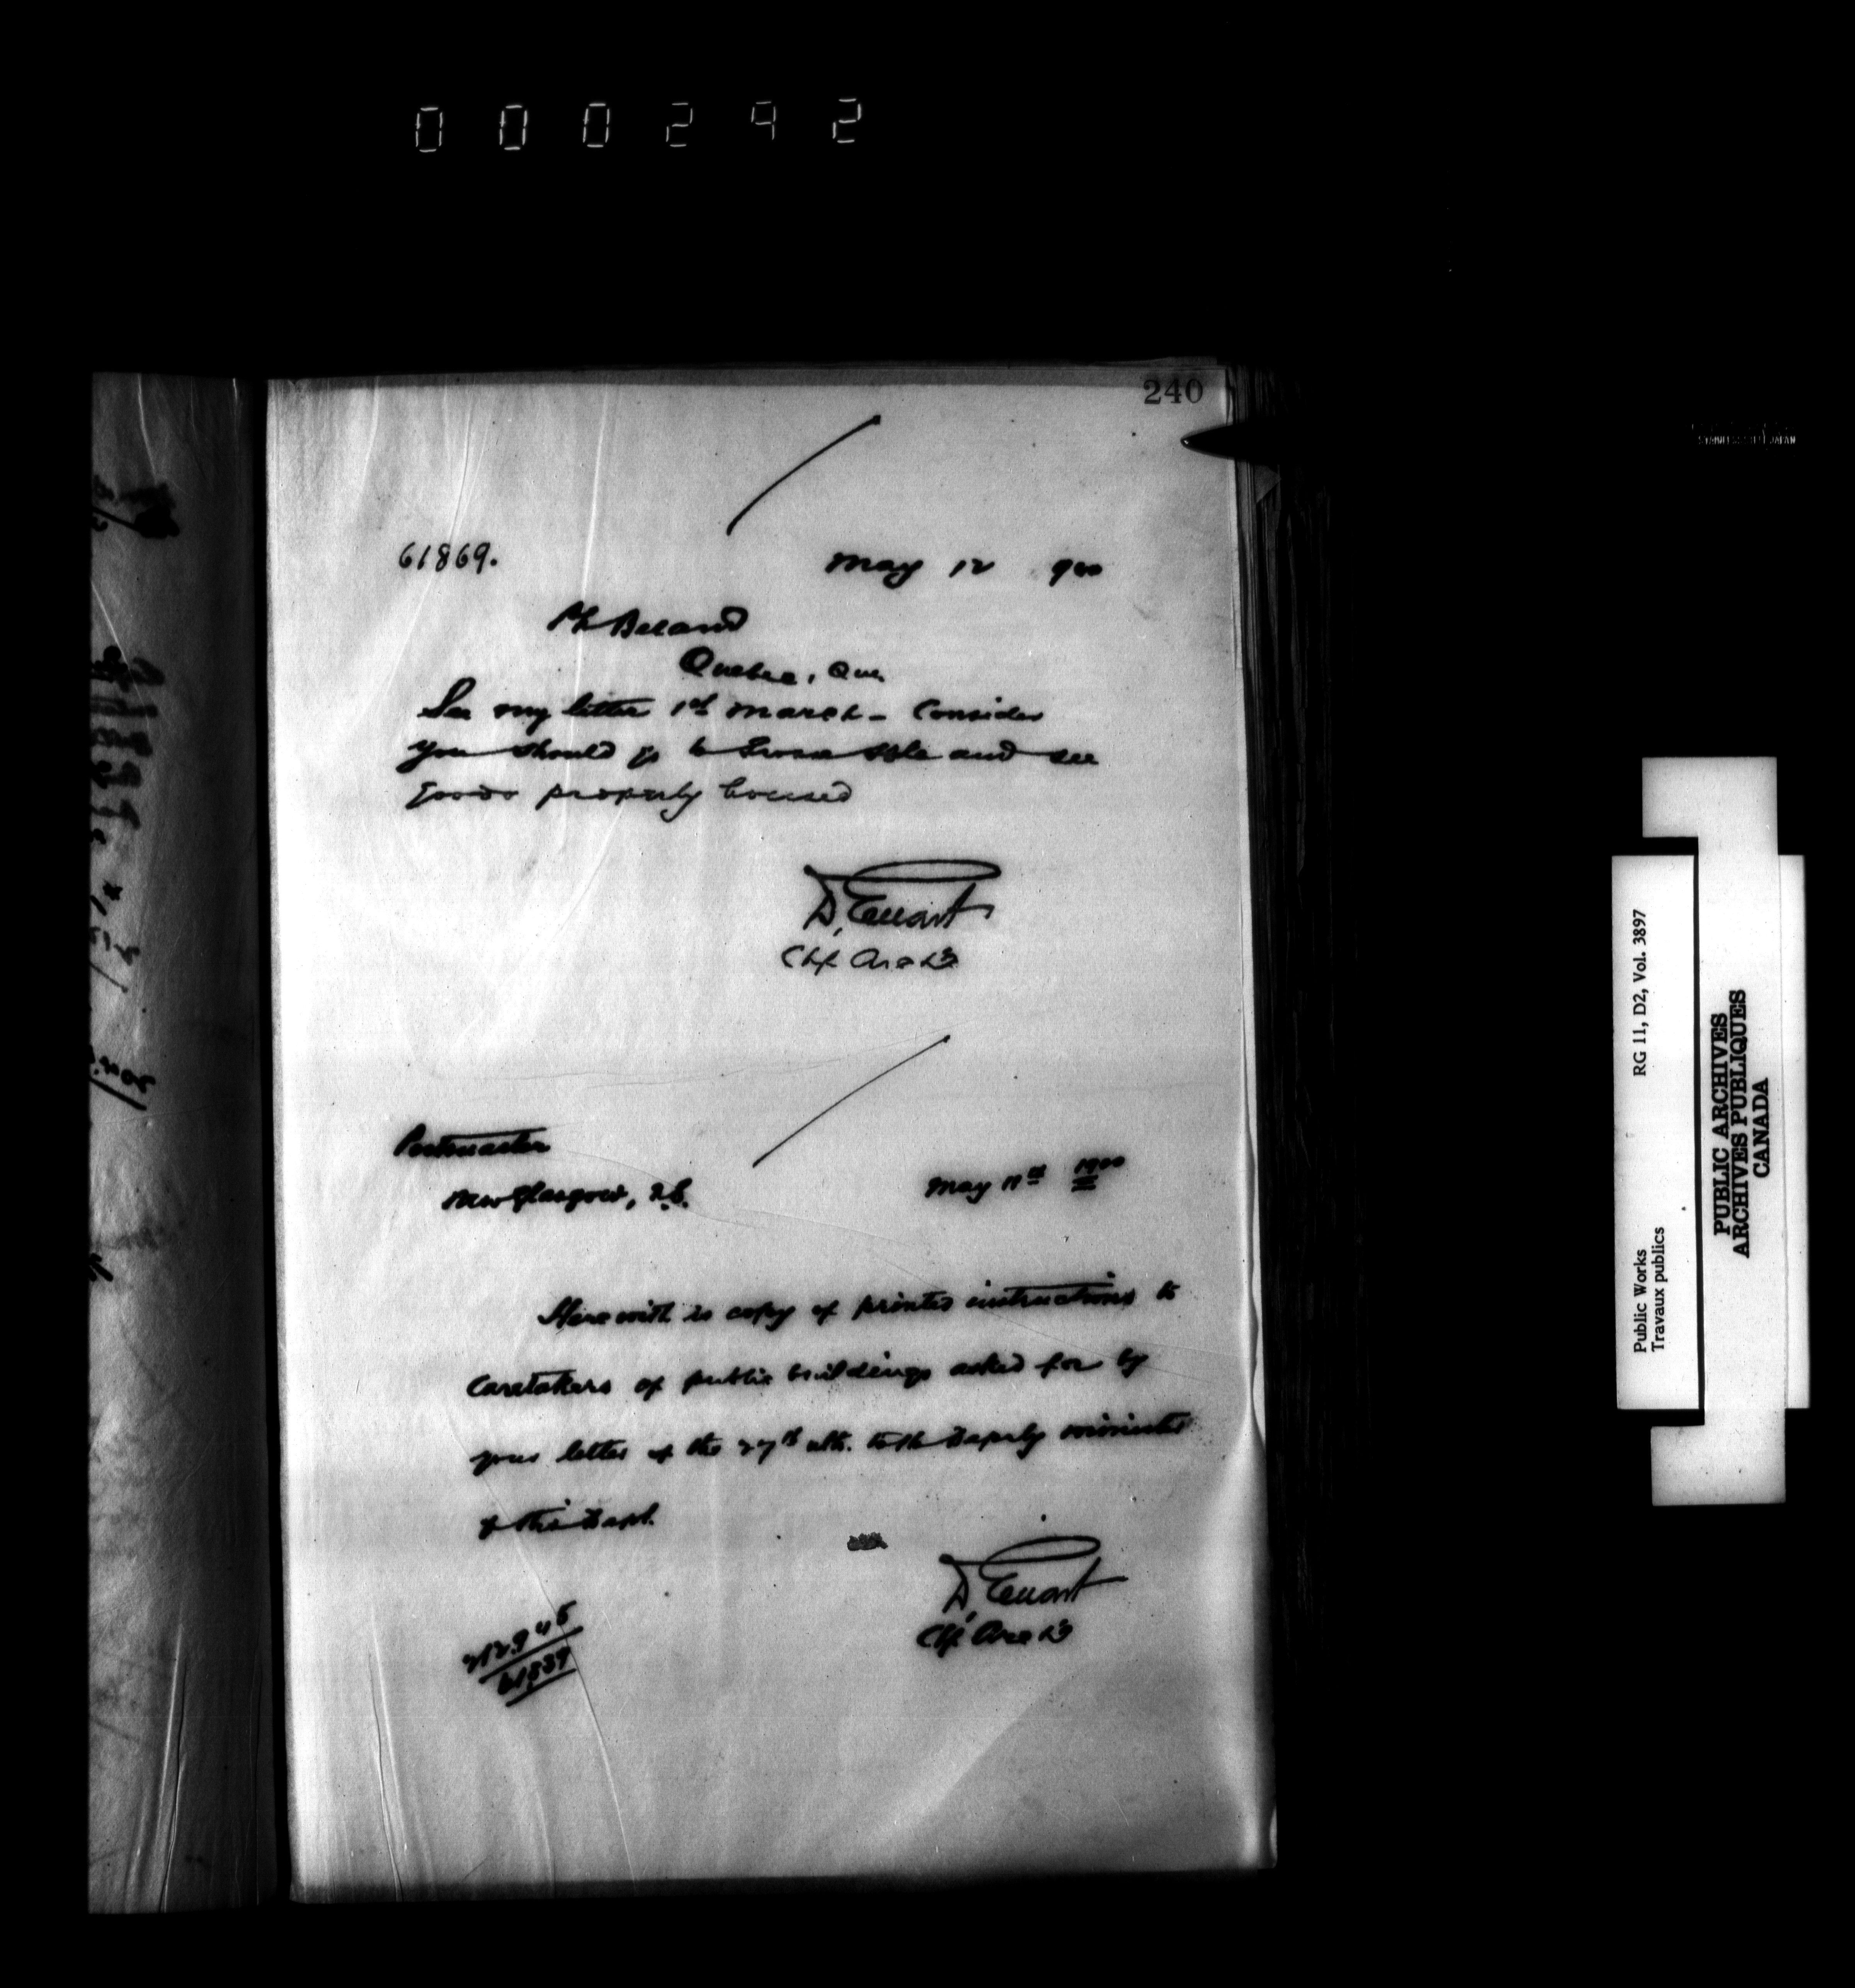 000292
240
61869.
May 12 900
Ph Beland
Quebec, Que.
See my letter 1st March - Consider
you should go to Grosse Isle and see
goods properly housed
D. Ewart
Chf Archt
Postmaster
New Glasgow, N.S.
May 11th 1900
Herewith is copy of printed instructions to
Caretakers of public buildings asked for by
your letter of the 27th ult. to the Deputy Minister
of this Dept.
D. Ewart
Chf Archt
212945
61839
STAINLESS STEEL JAPAN
Public Works
Travaux publics
RG 11, D2, Vol. 3897
PUBLIC ARCHIVES
ARCHIVES PUBLIQUES
CANADA